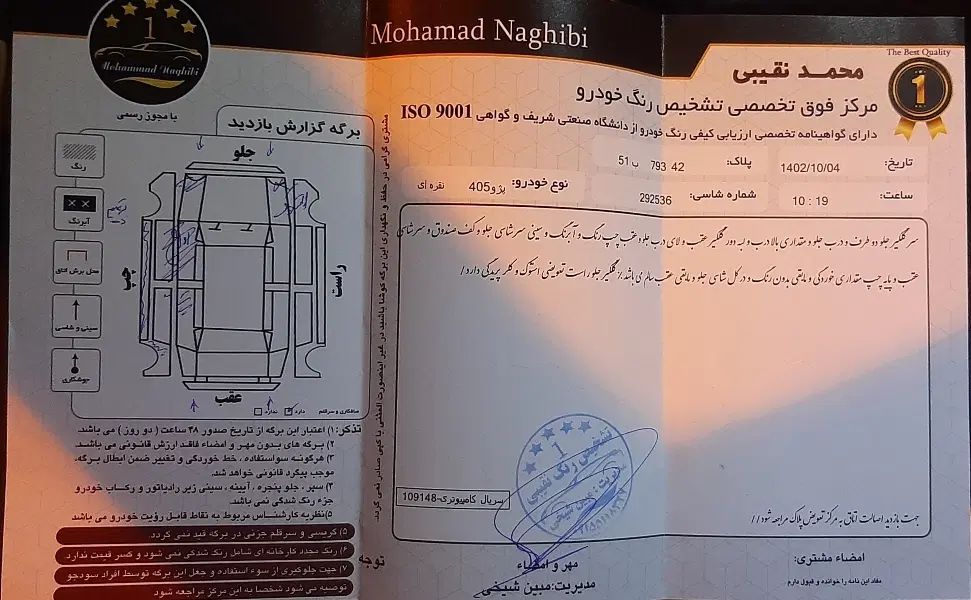 Mohamad Naghibi
The Best Quality
1
محمد نقیبی
مرکز فوق تخصصی تشخیص رنگ خودرو
دارای گواهینامه تخصصی ارزیابی کیفی رنگ خودرو از دانشگاه صنعتی شریف و گواهی ISO 9001
تاریخ: 1402/10/04
پلاک: 42 793 ب 51
ساعت: 10 : 19
شماره شاسی: 292536
نوع خودرو: پژو405 نقره ای
سر گلگیر جلو دو طرف و درب جلو و مقداری بالا درب و لبه دور گلگیر عقب و لای درب جلو و عقب چپ رنگ و آبرنگ و سینی سرشاسی جلو و کف صندوق و سرشاسی
عقب و پایه چپ مقداری خوردگی و مابقی بدون رنگ و در کل شاسی جلو و مابقی عقب سالم می باشد٪ گلگیر جلو راست تعویضی استوک و کلر پریدگی دارد/
سریال کامپیوتری-109148
جهت بازدید اصالت اتاق به مرکز تعویض پلاک مراجعه شود//
تشخیص رنگ نقیبی
1
مهر و امضاء
مدیریت: مبین شیخی
امضاء مشتری:
مفاد این نامه را خوانده و قبول دارم
1
Mohammad Naghibi
با مجوز رسمی
برگه گزارش بازدید
جلو
رنگ
آبرنگ
محل برش اتاق
سینی و شاسی
جوشکاری
چپ
راست
عقب
صافکاری و سرقلم دارد ندارد
تذکر: ۱) اعتبار این برگه از تاریخ صدور ۴۸ ساعت ( دو روز ) می باشد.
۲) برگه های بدون مهر و امضاء فاقد ارزش قانونی می باشد.
۳) هرگونه سواستفاده ، خط خوردگی و تغییر ضمن ابطال برگه،
موجب پیگرد قانونی خواهد شد.
۴) سپر ، جلو پنجره ، آیینه ، سینی زیر رادیاتور و رکاب خودرو
جزء رنگ شدگی نمی باشد.
۵) نظریه کارشناس مربوط به نقاط قابل رؤیت خودرو می باشد
توجه
۵) کریسی و سرقلم جزئی در برگه قید نمی گردد.
۶) رنگ مجدد کارخانه ای شامل رنگ شدگی نمی شود و کسر قیمت ندارد
۷) جهت جلوگیری از سوء استفاده و جعل این برگه توسط افراد سودجو
توصیه می شود شخصا به این مرکز مراجعه شود